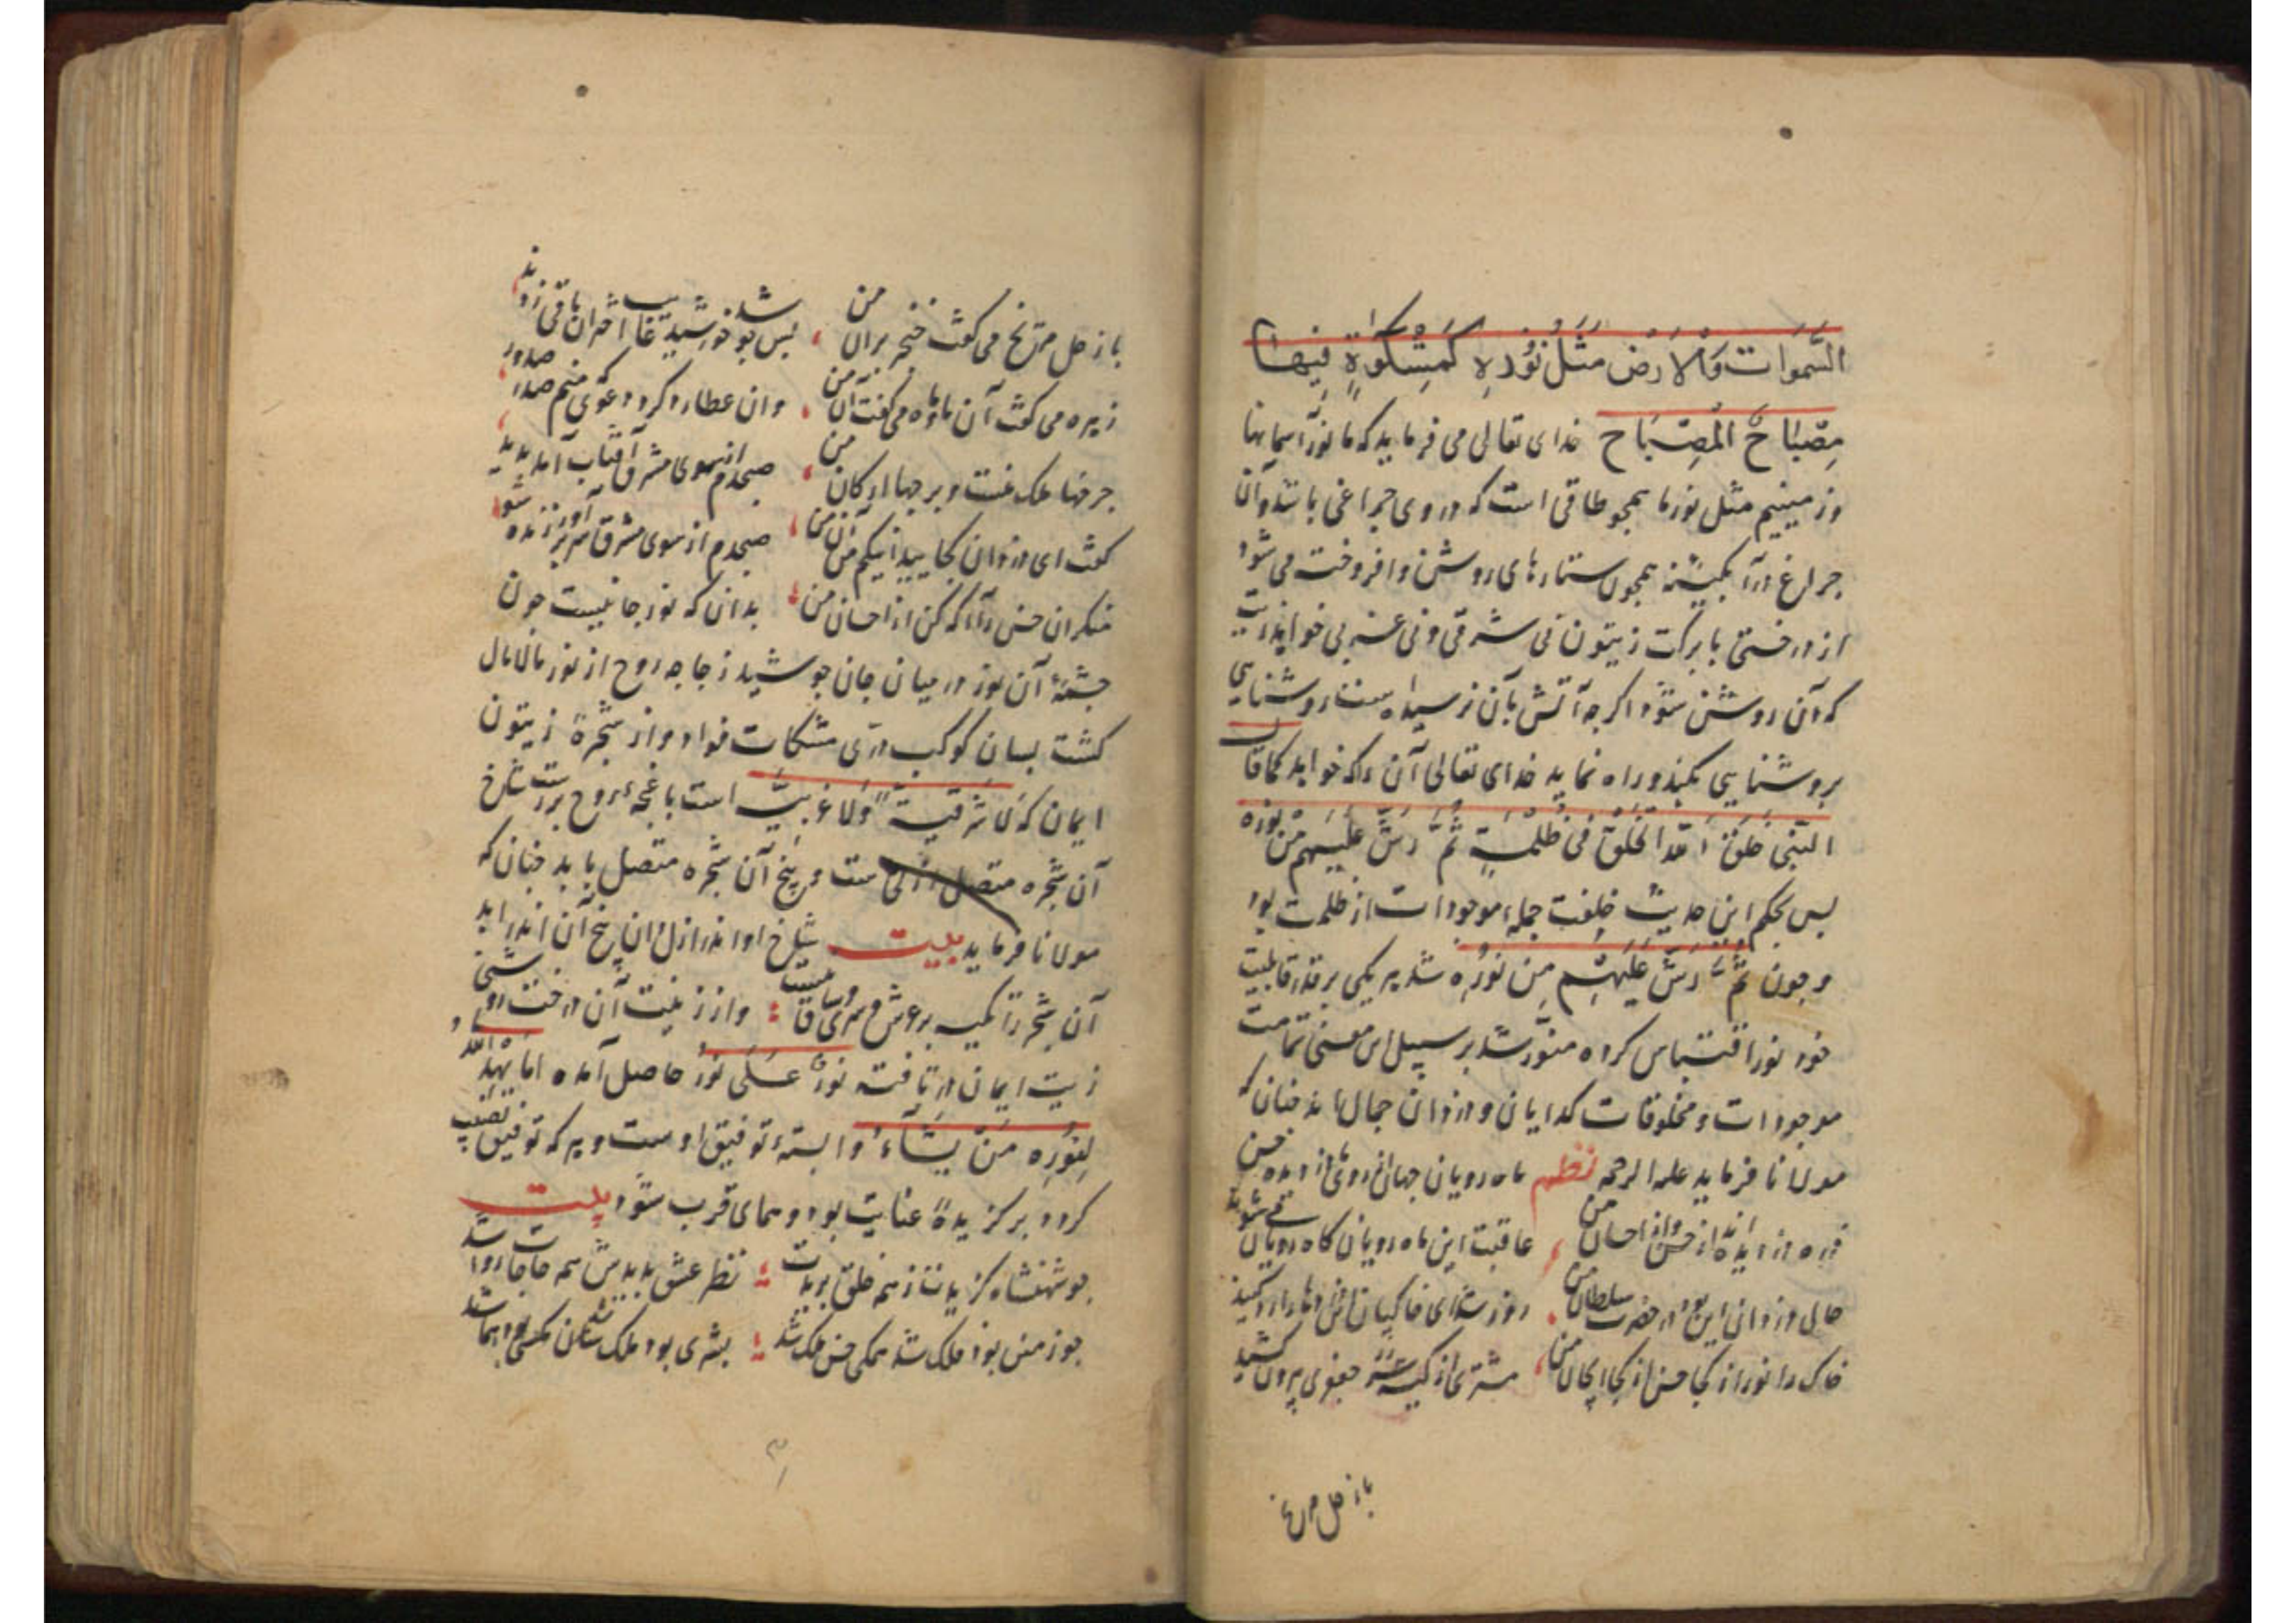 السَّمَوات وَالاَرْضِ مَثَلُ نُوْرِهِ كَمِشْكَوٰةٍ فِيْهَا
مِصْبَاحٌ الْمِصْبَاح خدای تعالی می فرماید که ما نور آسمانها
و زمینیم مثل نور ما همجو طاقی است که در وی جراغی باشد و آن
جراغ در آبکینه همجون ستارهای روشن و افروخته می شود
از درختی با برکت زیتون نی شرقی و نی غربی خواهد زیت
که آن روشن شود اکر جه آتش بآن نرسیده است روشنایی
بروشنایی بکند و راه نماید خدای تعالی آن را که خواهد کما قال
النَّبی خَلَقَ اللهُ الْخَلْقَ فی ظُلْمَةٍ ثُمَّ رَشَّ عَلَیْهِم مِنْ نُوْره
بس بحکم این حدیث خلقت جملهٔ موجودات از ظلمت بود
و جون ثُمَّ رَشَّ عَلَیْهِم مِن نُورِه شد هر یکی بر قدر قابلیت
خود نور اقتباس کرده منوّر شد بر سبیل این معنی تمامت
موجودات و مخلوقات کدایان و دزدان جمال اند جنان که
مولانا فرماید علیه الرحمه نظم ماه رویان جهان از روی ما دزدند حسن
ذره دزدیده اند از حسن و از احسان من ، عاقبت این ماه رویان کاه رویان می شوند
حال دزدان این بود در حضرت سلطان من . روز شد ای خاکیان دزدیدها را رد کنید
خاک را نور از کجا حسن از کجا ای جان من ، مشتری از کیسه جعفری بیرون کشید
باز حل مریخ
باز حل مریخ می کفت خنجر بران من ، بس جو خورشید غایب شد اختران باقی زدند
زهره می کفت آن ماه و ماه می کفت آن من . وان عطارد کرد دعوی که منم صدر صدور
جرخها ملک منست و برجها ارکان من ، صبحدم از سوی مشرق آفتاب آمد بدید
کفت ای دزدان کجایید اینکم من آن من ، صبحدم از سوی مشرق سر برآورد زنده شو
منکران حسن را آکه کن از احسان من ، بدان که نور جانیست جون
جشمهٔ آن نور در میان جان جوشید زجاجه روح از نور مالامال
کشت بسان کوکب درّی مشکات فواد و از شجرهٔ زیتون
ایمان که لَا شَرْقِیَّةً وَلَا غَرْبِیَّة است باغجهٔ روح بررست شاخ
آن شجره متصل ازلی ست و بیخ آن شجره متصل بابد جنان که
مولانا فرماید بیت شاخ او اندر ازل دان بیخ آن اندر ابد
آن شجر را تکیه بر عرش و ثری و ساق نیست ؛ و از زیت آن درخت روشنی
زیت ایمان در تافته نورٌ عَلَی نُور حاصل آمده اما یَهدِ الله
لِنُورِه مَنْ یَشَآءُ وابستهٔ توفیق اوست و هر که توفیق نصیب
کردد برکزیدهٔ عنایت بود و همای قرب شود بیت
جو شهنشاه کزیدت ز همه خلق بریدت ؛ نظر عشق بدیدش همه حاجات روا شد